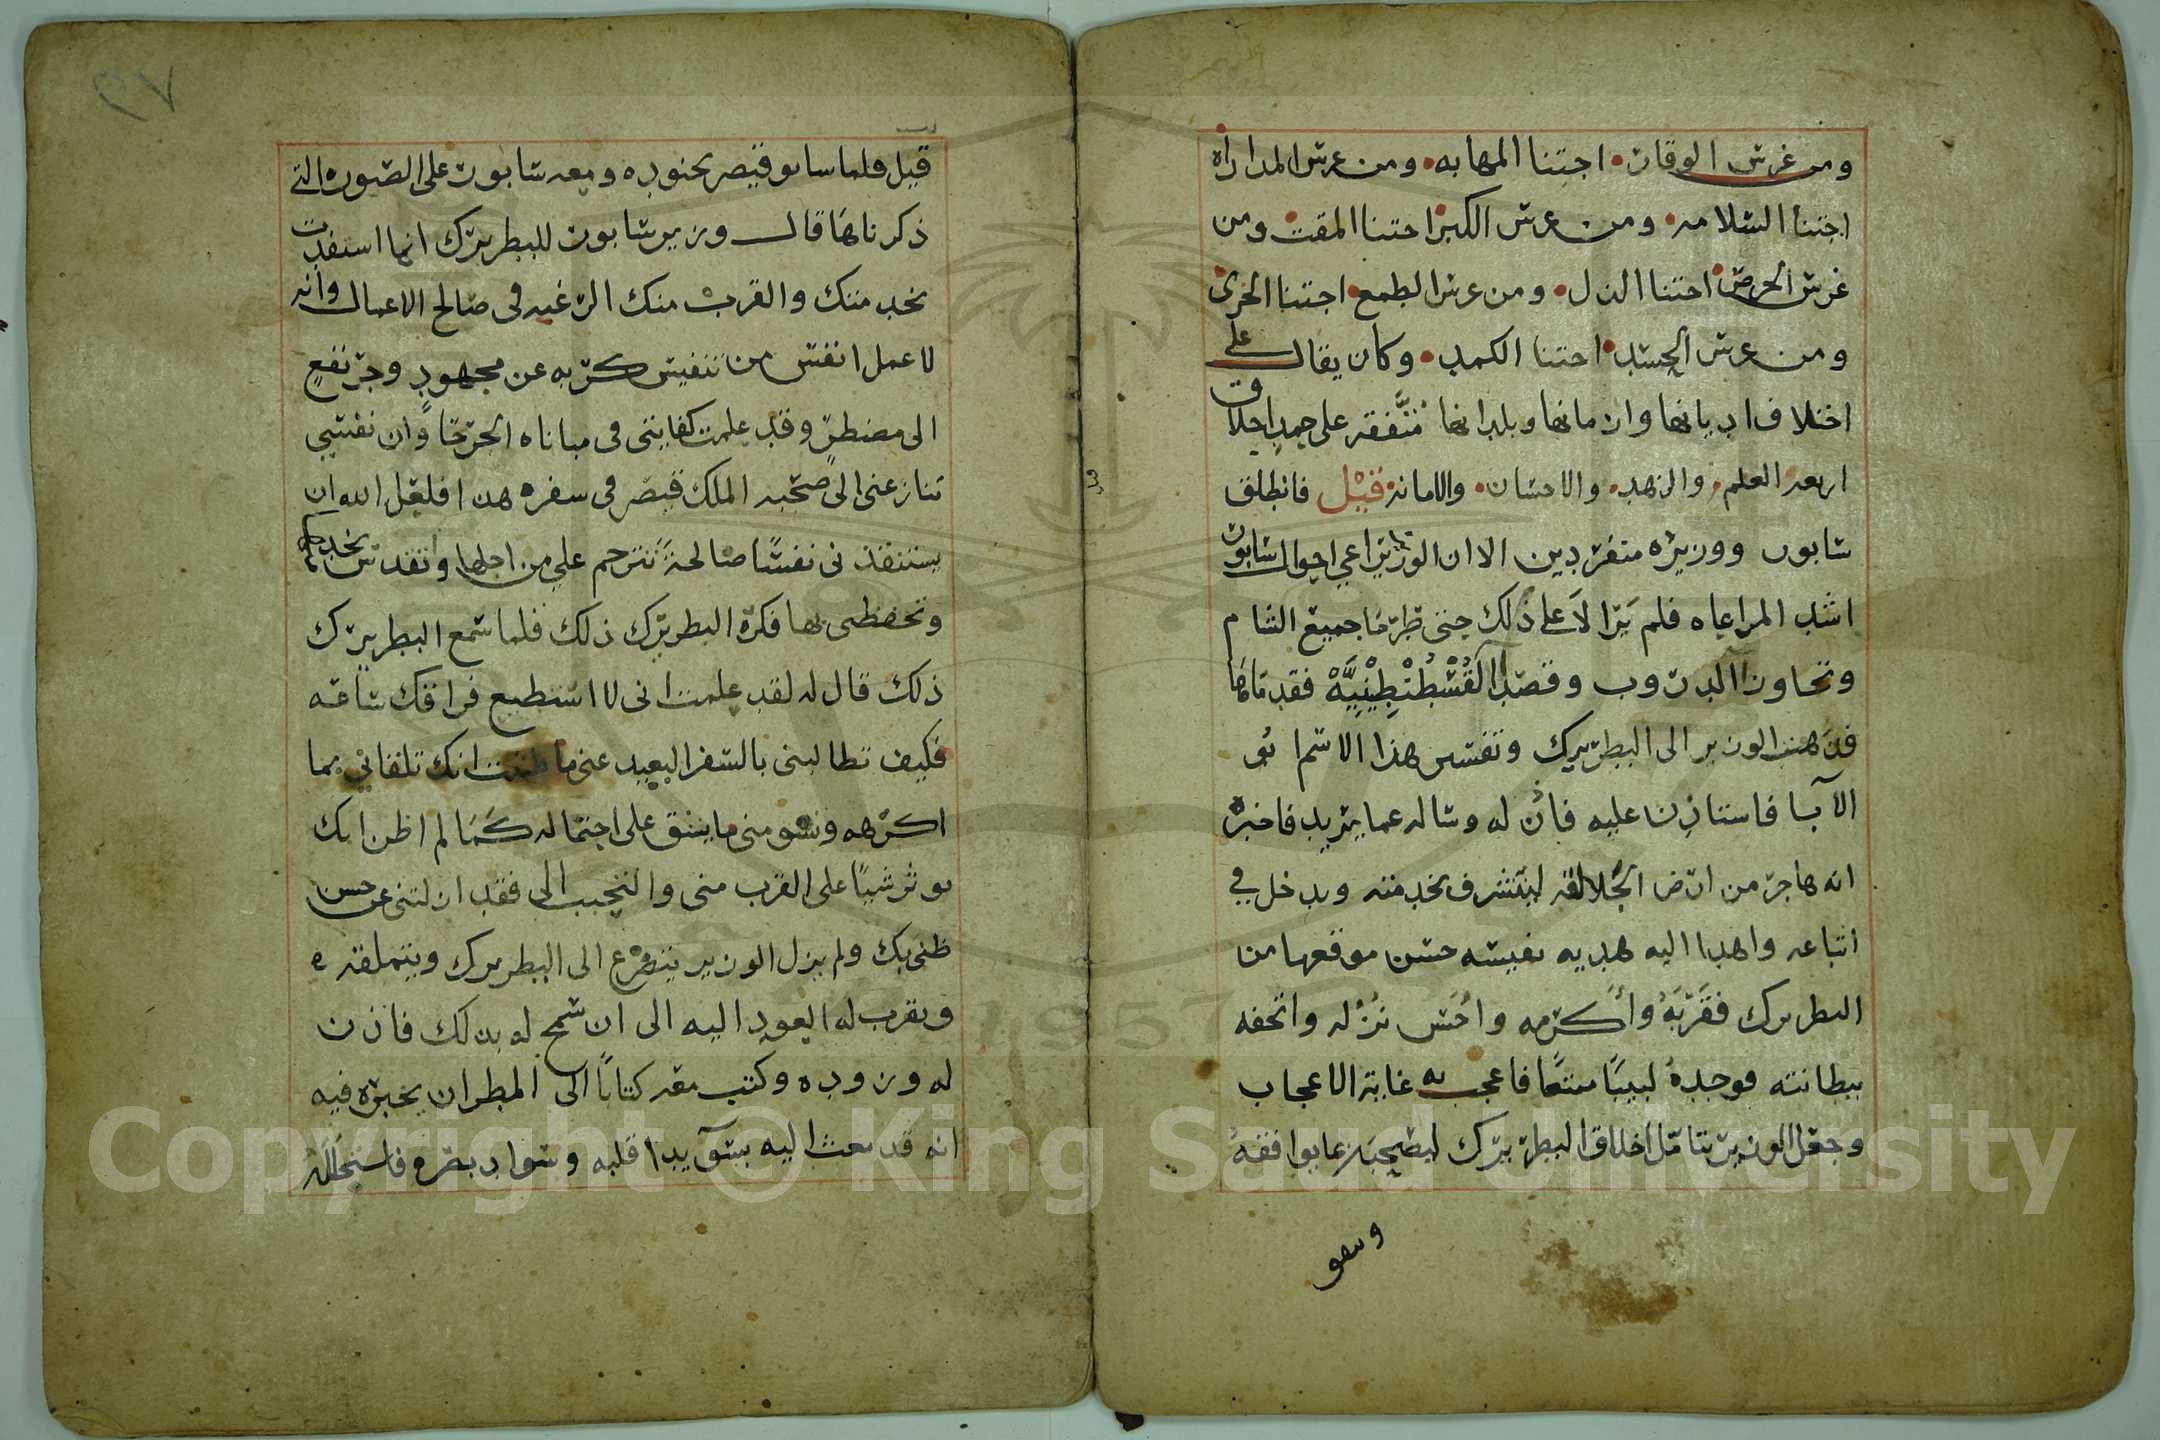 ومن غرس الوقار اجتنا المهابه ومن غرس المداراة
اجتنا السلامه ومن غرس الكبر اجتنا المقت ومن
غرس الحرص اجتنا الذل ومن غرس الطمع اجتنا الخزى
ومن غرس الحسد اجتنا الكمد وكان يقال على
اختلاف اديانها وازمانها وبلدانها متفقه على حمد اخلاق
اربعه العلم والزهد والاحسان والامانه قيل فانطلق
سابور ووزيره منفردين الا ان الوزير يراعي احوال سابور
اشد المراعاه فلم يزالا على ذلك حتى طرقا جميع الشام
وتجاوزا الدروب وقصدا القُسْطُنْطِيْنِيَّهْ فقدماها
فذهب الوزير الى البطريرك وتفسير هذا الاسم ابو
الآبا فاستاذن عليه فاذن له وساله عما يريد فاخبره
انه هاجر من ارض الجلالقه ليتشرف بخدمته ويدخل في
اتباعه واهدا اليه هديه نفيسه حسن موقعها من
البطريرك فقَرَّبَهُ وأكرمه واحسن نُزُله واتحفه
ببطانته فوجده لبيبا ممتعا فاعجب به غاية الاعجاب
وجعل الوزير يتامّل اخلاق البطريرك ليصحبه بما يوافقه
وسعو
٩٧
قيل فلما سار قيصر بجنوده ومعه سابور على الصوره التي
ذكرناها قال وزير سابور للبطريرك انما استفدت
بخدمتك والقرب منك الرغبه في صالح الاعمال وانه
لا عمل انفس من تنفيس كربه عن مجهود وجر نفع
الى مضطر وقد علمت كفايتى في مداناه الجرحا وان نفسي
تنازعنى الى صحبه الملك قيصر في سفره هذا فلعل الله ان
يستنقذ بى نفسا صالحة تترحم علي من اجلها وتقدس بخدمتكم
وتحفظى بها فكره البطريرك ذلك فلما سمع البطريرك
ذلك قال له لقد علمت انى لا استطيع فراقك ساعه
فكيف تطالبنى بالسفر البعيد عنى ما ظننت انك تلقاني بما
اكرهه وتسومنى ما يشق على احتماله كما لم اظن انك
توثر شيا على القرب منى والتحبب الى فقد ازلتنى عن حسن
ظنى بك ولم يزل الوزير يتضرع الى البطريرك ويتملقه
ويقرب له العود اليه الى ان سمح له بذلك فاذن
له وزوده وكتب معه كتابا الى المطران يخبره فيه
انه قد بعث اليه بسويدا قلبه وسواد بصره فاستحله